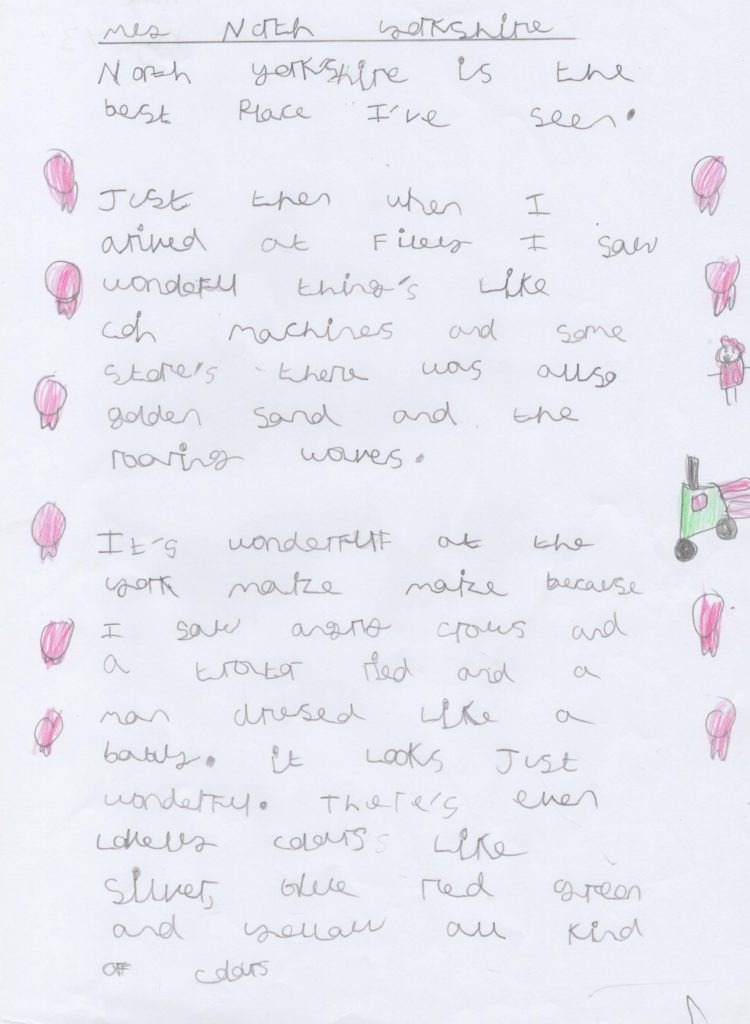 North yorkshire
North yorkshire is the
best Place I've seen.
Just then when I
arived at Filey I saw
wonderfull thing's like
coin machines and some
store's there was allso
golden sand and the
roaring waves.
It's wonderfull at the
york maize maize because
I saw angry crows and
a tracter ried and a
man dresed like a
baby. it looks Just
wonderful. There's even
lovely colours like
silver, blue red green
and yellow all kind
of colours